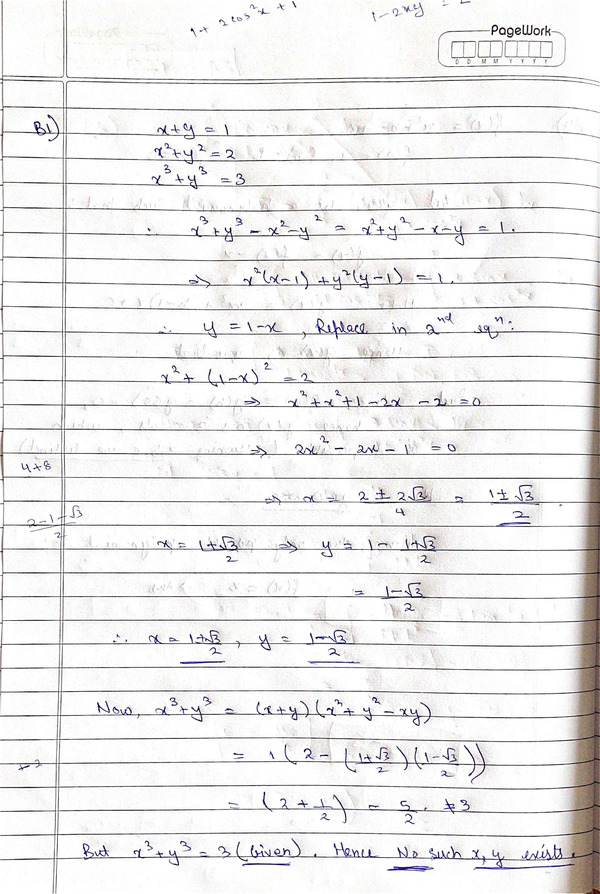 1+ 2cos²x + 1
1-2xy =
PageWork
D D M M Y Y Y Y
B1) x+y = 1
x²+y² = 2
x³+y³ = 3
∴ x³+y³-x²-y² = x²+y²-x-y = 1.
⇒ x²(x-1) + y²(y-1) = 1.
∴ y = 1-x , Replace in 2nd eqn:
x² + (1-x)² = 2
⇒ x²+x²+1-2x-2 = 0
⇒ 2x²-2x-1 = 0
4+8
⇒ x = (2±2√3)/4 = (1±√3)/2
(2-1-√3)/2
x = (1+√3)/2 ⇒ y = 1 - (1+√3)/2
= (1-√3)/2
∴ x = (1+√3)/2 , y = (1-√3)/2
Now, x³+y³ = (x+y)(x²+y²-xy)
= 1(2-((1+√3)/2)((1-√3)/2))
= (2+1/2) = 5/2. ≠3
But x³+y³ = 3 (Given). Hence No such x, y exists.